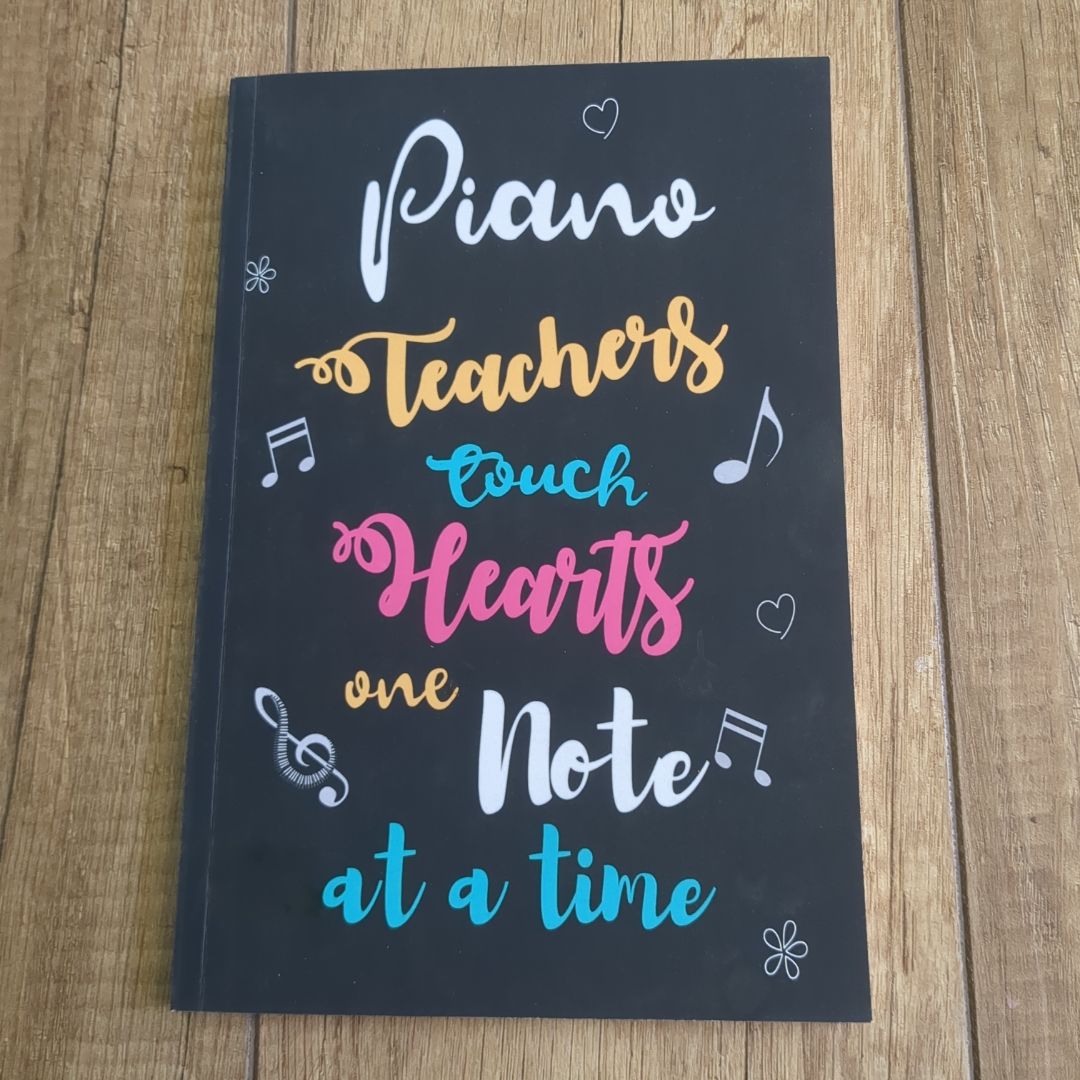 Piano
Teachers
touch
Hearts
one
Note
at a time